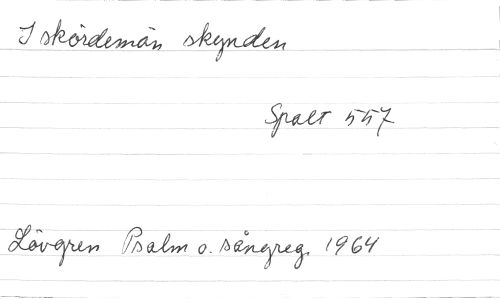 I skördemän skynden
Spalt 557
Lövgren Psalm o. sångreg. 1964